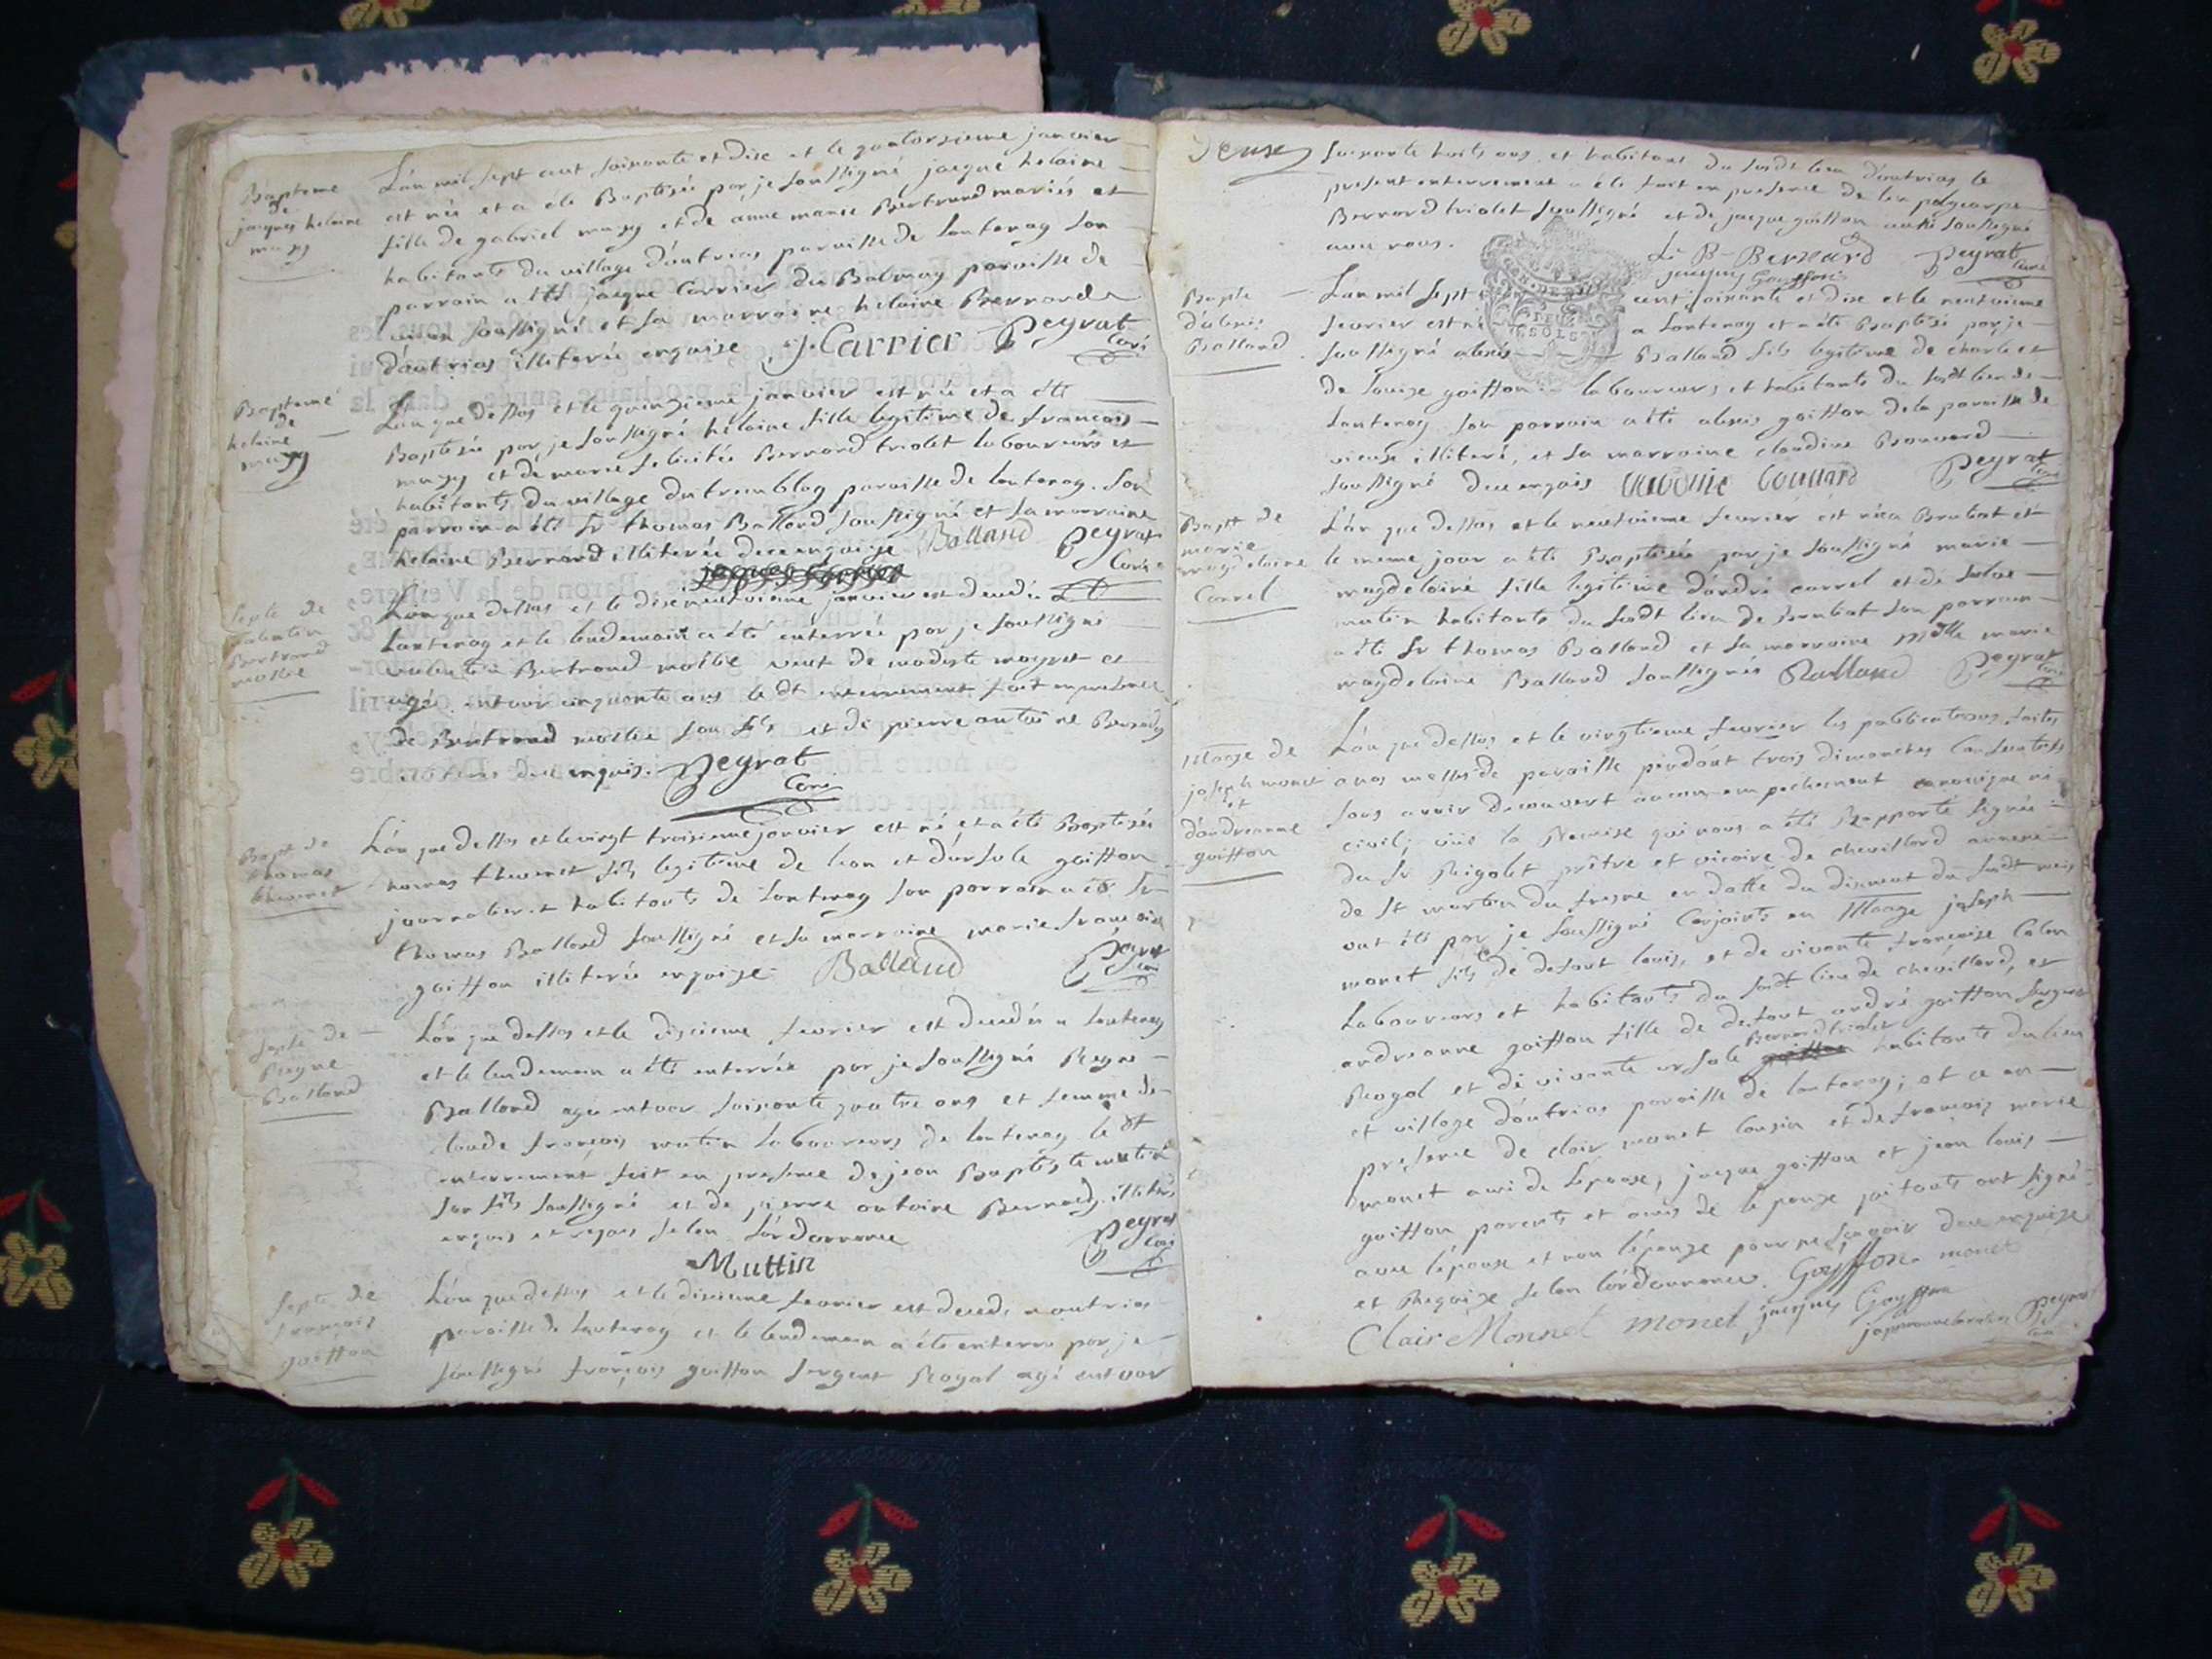 Bapteme
de
jacques helaine
mugg
L'an mil sept cent soixante et dix et le quatorzieme janvier
est née et a été Baptisée par je soussigné jacque helaine
fille de gabriel et de anne marie Bertrand mariés et
habitants du village d'outrias paroisse de Lantenay son
parrain a été jacque Carrier du Balmay paroisse de
soussigné et sa marraine helaine Bernard
d'outrias illiterée enquise J. Carrier Peyrat
Curé
Bapteme
de
helaine
L'an que dessus et le quinzieme janvier est née et a été
Baptisée par je soussigné helaine fille legitime de francois
et de marie felicitée Bernard triolet laboureurs et
habitants du village du tremblay paroisse de lantenay. son
parrain a été Sr thomas Balland soussigné et sa marraine
helaine Bernard illiterée de ce enquise Balland Peyrat
Curé
Septe de
valentin
Bertrand
L'an que dessus et le dixneuvieme janvier est decedé a
Lantenay et le lendemain a été enterrée par je soussigné
valentin Bertrand veuf de modeste et
agé entour cinquante ans le dt enterrement fait en presence
de Bertrand son fils et de pierre antoine Bernard
de ce enquis. Peyrat
Curé
Bapt de
thomas
thevenet
L'an que dessus et le vingt troisieme janvier est né et a été Baptisée
thomas thevenet fils legitime de leon et d'ursule goiffon
journalier et habitants de Lantenay son parrain a été Sr
thomas Balland soussigné et sa marraine marie francoise
goiffon illiterée enquise Balland Peyrat
Curé
Septe de
Reyne
Balland
L'an que dessus et le dixieme fevrier est decedée a lantenay
et le lendemain a été enterrée par je soussigné Reyne
Balland agée entour soixante quatre ans et femme de
claude françois mutin laboureurs de lantenay le dt
enterrement fait en presence de jean Baptiste mutin
son fils soussigné et de pierre antoine Bernard illiteré
enquis et requis selon l'ordonnance Peyrat
Curé
Muttin
Septe de
françois
goiffon
L'an que dessus et le dixieme fevrier est decedé a outrias
paroisse de lantenay et le lendemain a été enterré par je
soussigné françois goiffon sergent Royal agé entour
Deuxe
soixante huits ans et habitant du susdt lieu d'outrias le
present enterrement a été fait en presence de leon polycarpe
Bernard triolet soussigné et de jacque goiffon aussi soussigné
avec nous.
L. B. Bernard Peyrat
jacques Goyffon Curé
Bapte
d'alexis
Balland
L'an mil sept cent soixante et dix et le neuvieme
fevrier est né a Lantenay et a été Baptisé par je
soussigné alexis Balland fils legitime de charle et
de louize goiffon laboureurs et habitants du susdt lieu de
Lantenay son parrain a été alexis goiffon de la paroisse de
vieu illiteré, et sa marraine claudine
soussigné de ce enquis Peyrat
Curé
Bapt de
marie
magdelaine
Carrel
L'an que dessus et le neuvieme fevrier est née a Brabat et
le meme jour a été Baptisée par je soussigné marie
magdelaine fille legitime d'andré carrel et de
mutin habitants du susdt lieu de Brabat son parrain
a été Sr thomas Balland et sa marraine Mdlle marie
magdelaine Balland soussignés Balland Peyrat
Curé
Mariage de
joseph monet
et
d'andreanne
goiffon
L'an que dessus et le vingtieme fevrier les publications faites
a nos messes de paroisse pendant trois dimanches consecutifs
sans avoir decouvert aucun empechement canonique ni
civil; vüe la Remise qui nous a été Rapporté signée
du Sr Rigolet prêtre et vicaire de chevillard annexe
de St martin du fresne en datte du dixneuf du susdt mois
ont été par je soussigné Conjoints en Mariage joseph
monet fils de defunt louis, et de vivante françoise Colon
Laboureurs et habitants du susdt lieu de chevillard, et
andreanne goiffon fille de defunt andré goiffon sergent
Bernard triolet
Royal et de vivante ursule habitants du lieu
et village d'outrias paroisse de lantenay; et ce en
presence de clair monet cousin et de françois marie
monet ami de l'epoux, jacque goiffon et jean louis
goiffon parents et amis de l'epouze qui touts ont signé
avec l'epoux et non l'epouze pour ne sçavoir de ce enquise
et Requise selon l'ordonnance. Goyffon monet
Clair Monnet monet jacques Goyffon
Peyrat
Curé